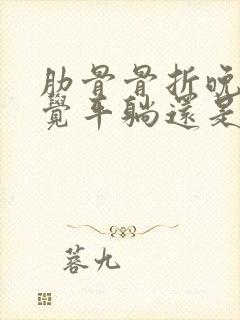 肋骨骨折晚
覺平躺還是
蓉九